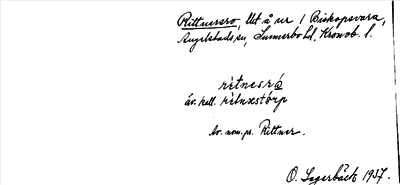 Rittnersro, Utt å ur 1 Biskopsvara,
Angelstads sn, Sunnerbo hd, Kronob. l.
ritnesró
äv. kall. ritnæstórp
Av. nom. pr. Rittner.
O. Lagerbäck 1937.